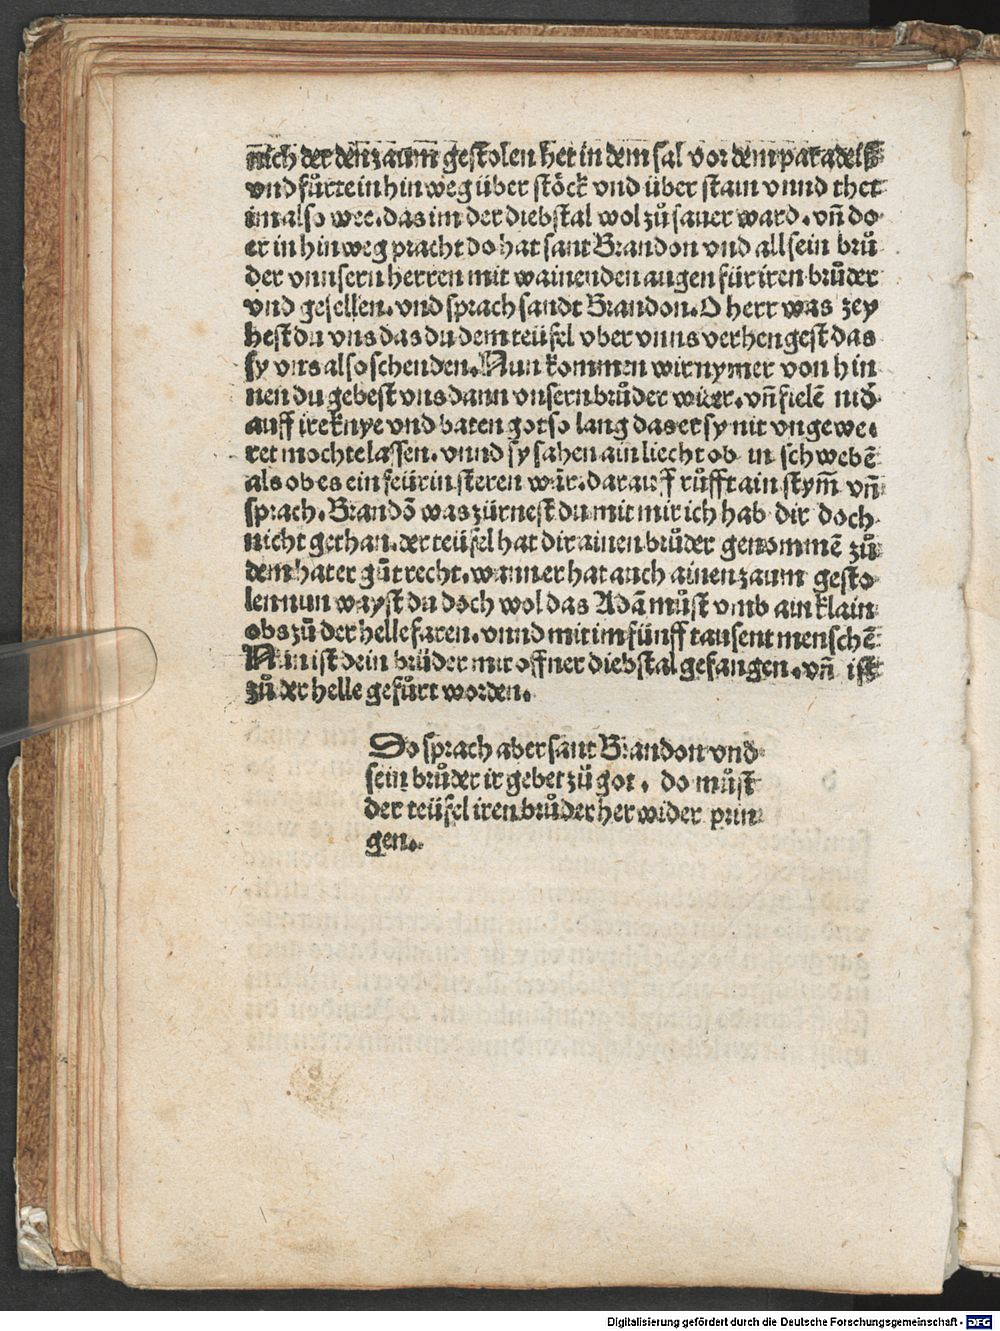 nich der den zaum gestolen het in dem sal vor dem paradeiß
vnd fůrte in hin weg über stöck vnd über stain vnnd thet
im also wee. das im der diebstal wol zů sauer ward. vn̄ do
er in hin weg pracht do hat sant Brandon vnd all sein brů
der vnnsern herren mit wainenden augen für iren brůder
vnd gesellen. vnd sprach sandt Brandon. O herr was zey
hest du vns das du dem teüfel vber vnns verhengest das
sy vns also schenden. Nun kommen wir nymer von hin
nen du gebest vns dann vnsern brůder wider. vn̄ fielē nid
auff ire knye vnd baten got so lang das er sy nit vngewe.
ret mochte lassen. vnnd sy sahen ain liecht ob in schwebē
als ob es ein feürin steren wär. darauff růfft ain stym̄ vn̄
sprach. Brandō was zürnest du mit mir ich hab dir doch
nicht gethan. der teüfel hat dir ainen brůder genommē zů
dem hat er gůt recht. wann er hat auch ainen zaum gesto
len nun wayst du doch wol das Adā můst vmb ain klain
obs zů der helle faren. vnnd mit im fünff tausent menschē
Nun ist dein brůder mit offner diebstal gefangen. vn̄ ist
zů der helle gefůrt worden.
Do sprach aber sant Brandon vnd
sein brůder ir gebet zů got. do můst
der teüfel iren brůder her wider prin
gen.
Digitalisierung gefördert durch die Deutsche Forschungsgemeinschaft - DFG